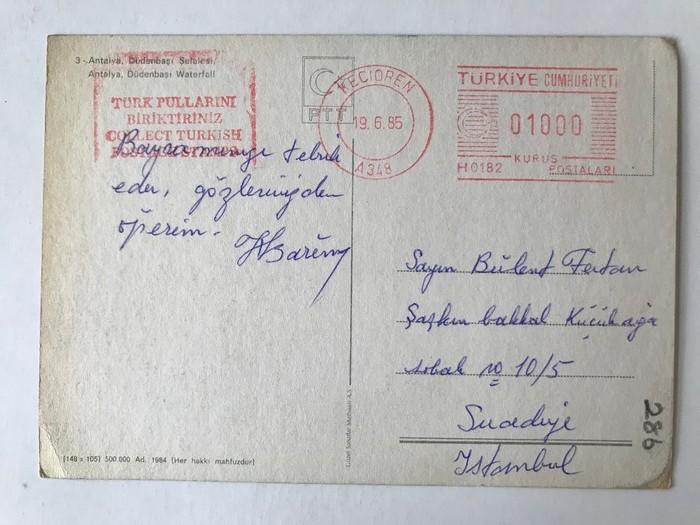 3 - Antalya, Düdenbaşı Şelalesi
Antalya, Düdenbaşı Waterfall
TÜRK PULLARINI
BİRİKTİRİNİZ
COLLECT TURKISH
PTT
KEÇİÖREN
19.6.85
A348
TÜRKİYE CUMHURİYETİ
01000
KURUŞ
H0182 POSTALARI
Bayramınızı tebrik
eder, gözlerinizden
öperim.
Sayın Bülent
Şaşkın bakkal Küçükağa
sokak no 10/5
Suadiye
İstanbul
286
Güzel Sanatlar Matbaası A.Ş.
(148 x 105) 500.000 Ad. 1984 (Her hakkı mahfuzdur)